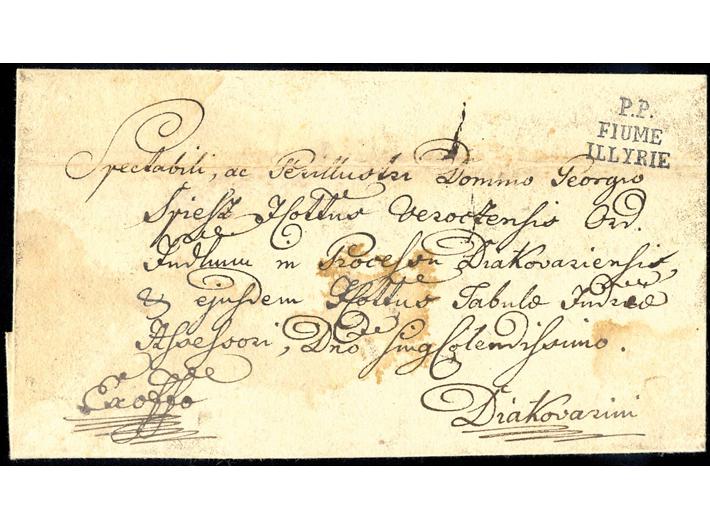 P.P.
FIUME
ILLYRIE
Spectabili, ac Perillustri Domino Georgio
Spiesz Ittus Veroczensis Ord.
Judlium in Processu Diakovariensis
& ejusdem Ittus Tabulæ Judræ
Assessori, Dno sing Colendissimo.
Exoffo
Diakovarini